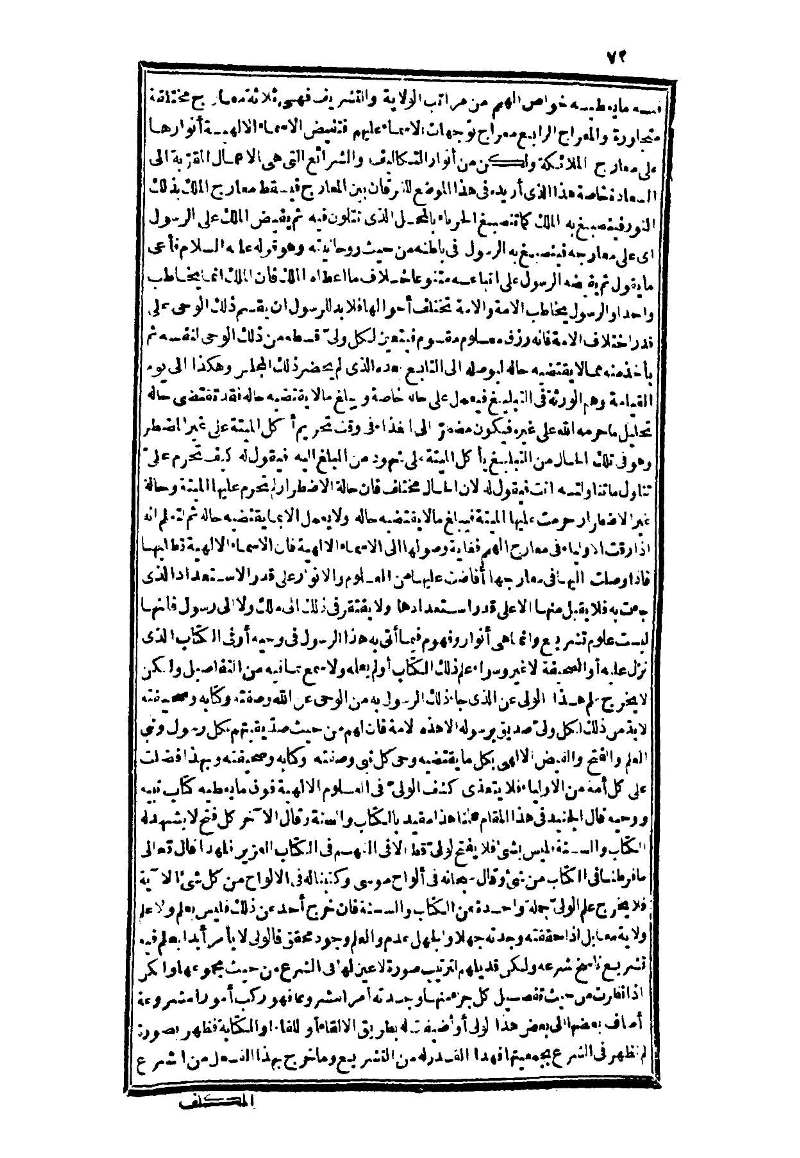 ٧٢
نفسه ما يعطيه خواص الهمم من مراتب الولاية والتشريف فهى ثلاثة معارج مختلفة
متجاورة والمعراج الرابع معراج توجهات الاسماء عليهم فتفيض الاسماء الالهية أنوارها
على معارج الملائكة ولكن من أنوار التكاليف والشرائع التى هى الاعمال المقربة الى
السعادة خاصة هذا الذى أريده فى هذا الموضع للفرقان بين المعارج فيسقط معارج الملك بذلك
النور فينصبغ به الملك كما تنصبغ الحرباء بالمحل الذى تتلون فيه ثم يفيض الملك على الرسول
اى على معارجه فينصبغ به الرسول فى باطنه من حيث روحانيته وهو قوله عليه السلام فأعى
ما يقول ثم يفيضه الرسول على اتباعه متنوعا خلاف ما اعطاه الملك فان الملك انما يخاطب
واحدا والرسول يخاطب الامة والامة تختلف أحوالها فلابد للرسول ان يقسم ذلك الوحى على
قدر اختلاف الامة فانه رزق معلوم مقسوم فيتعين لكل ولىّ قسطه من ذلك الوحى لنفسه ثم
يأخذ منه مما لا يقتضيه حاله ليوصله الى التابع بعده الذى لم يحضر ذلك المجلس وهكذا الى يوم
القيامة وهم الورثة فى التبليغ فيعمل على حالة خاصة ويبلغ ما لا يقتضيه حاله فقد تقتضى حاله
تحليل ما حرمه الله على غيره فيكون مضطرّ الى الغذاء فى وقت تحريم أكل الميتة على غير المضطر
وهو فى تلك الحال من التبليغ يأكل الميتة على شهود من المبلغ اليه فيقول له كيف تحرم علىّ
تناول ما تناولته انت فيقول له لان الحال مختلف فان حالة الاضطرار لم تحرم عليها الميتة وحالة
غير الاضطرار حرمت عليها الميتة فيبلغ ما لا يقتضيه حاله ولا يعمل الا بما يقتضيه حاله ثم لتعلم انه
اذا رقت الاولياء فى معارج الهمم فغاية وصولها الى الاسماء الالهية فان الاسماء الالهية تطلبها
فاذا وصلت اليها فى معارجها أفاضت عليها من العلوم والانوار على قدر الاستعداد الذى
جاءت به فلا يقبل منها الا على قدر استعدادها ولا يفتقر فى ذلك الى ملك ولا الى رسول فانها
ليست علوم تشريع وانما هى أنوار وفهوم فيما أتى به هذا الرسول فى وحيه أو فى الكتاب الذى
نزل عليه أو الصحيفة لا غير وسواء علم ذلك الكتاب أو لم يعلمه ولا سمع بما فيه من التفاصيل ولكن
لا يخرج علم هذا الولى عن الذى جاء ذلك الرسول به من الوحى عن الله وصفته وكتابه وصحيفته
لا بد من ذلك لكل ولىّ صديق برسوله الا هذه الامة فان لهم من حيث صدّيقيتهم بكل رسول ونبى
العلم والفتح والفيض الالهى بكل ما يقتضيه وحى كل نبى وصفته وكتابه وصحيفته وبهذا فضلت
على كل أمة من الاولياء فلا يتعدى كشف الولىّ فى العلوم الالهية فوق ما يعطيه كتاب نبيه
ووحيه قال الجنيد فى هذا المقام علمنا هذا مقيد بالكتاب والسنة وقال الآخر كل فتح لا يشهد له
الكتاب والسنة فليس بشئ فلا يفتح لولى قط الا فى الفهم فى الكتاب العزيز فلهذا قال تعالى
ما فرطنا فى الكتاب من شئ وقال سبحانه فى ألواح موسى وكتبنا له فى الالواح من كل شئ الآية
فلا يخرج علم الولىّ جملة واحدة عن الكتاب والسنة فان خرج أحد عن ذلك فليس بعلم ولا علم
ولاية معا بل اذا حققته وجدته جهلا والجهل عدم والعلم وجود محقق فالولى لا يأمر أبدا بعلم فيه
تشريع ناسخ لشرعه ولكن قد يلهم لترتيب صورة لا عين لها فى الشرع من حيث مجموعها ولكن
اذا نظرت من حيث تفصيل كل جزء منها وجدته أمرا مشروعا فهو ركب أمورا مشروعة
أضاف بعضها الى بعض هذا الولى أو أضيفت له بطريق الالقاء أو اللقاء أو الكتابة فظهر بصورة
لم تظهر فى الشرع بجمعيتها فهذا القدر له من التشريع وما خرج بهذا الفعل من الشرع
المكلف